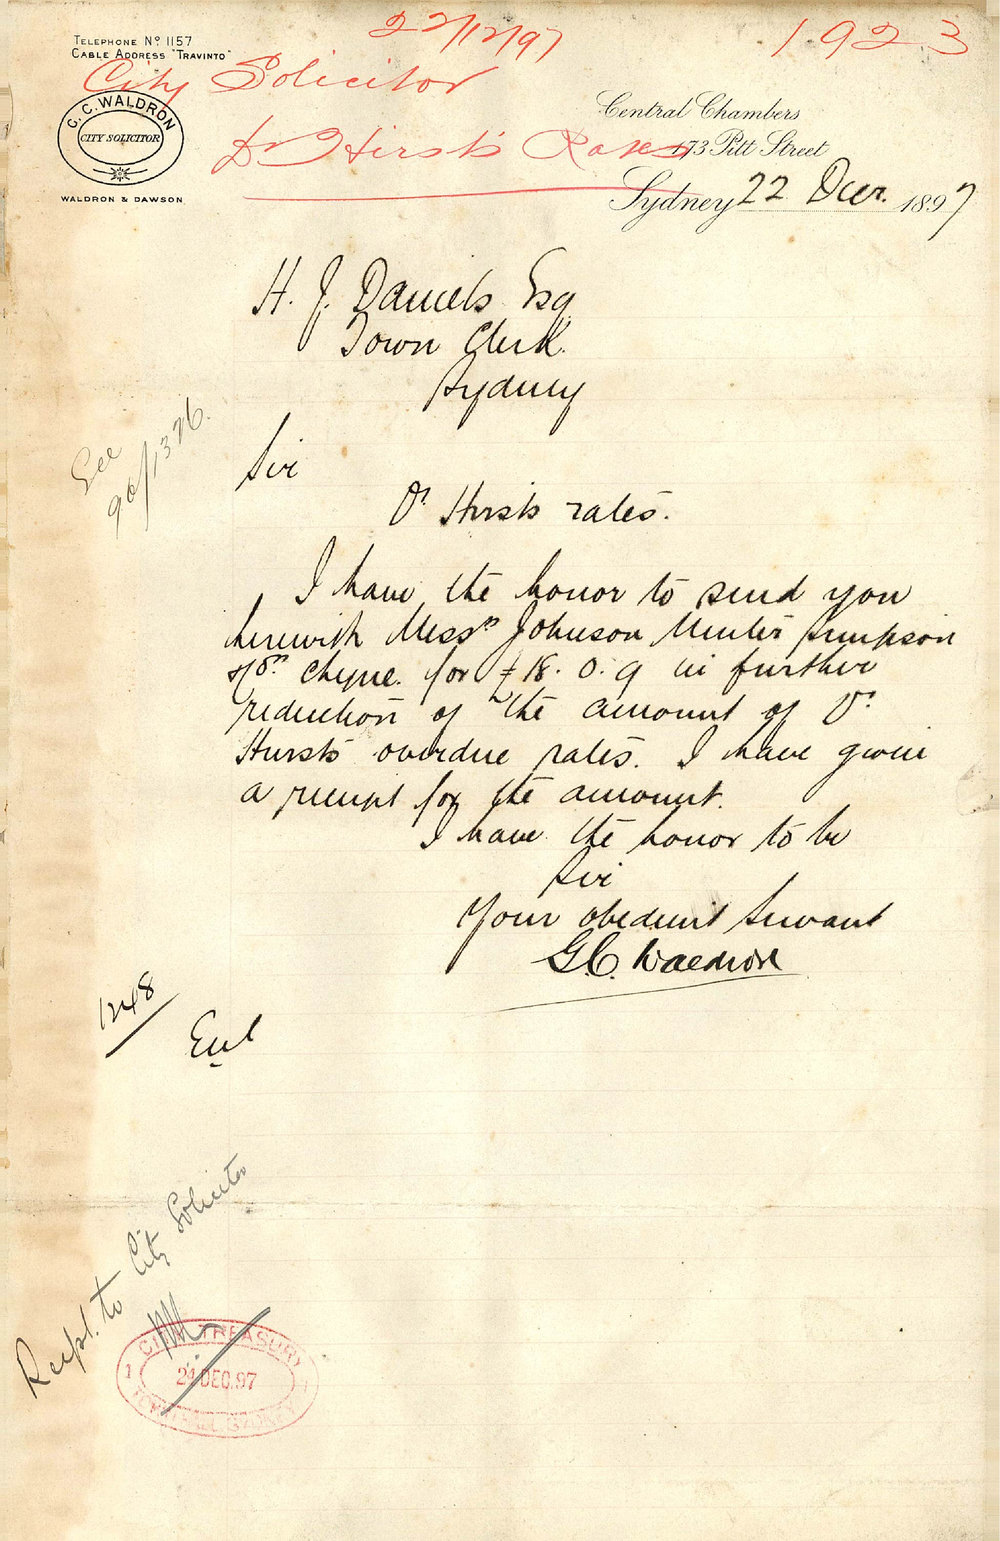 22/12/97
1923
TELEPHONE No 1157
CABLE ADDRESS "TRAVINTO"
City Solicitor
Dr Hirst's Rates
G. C. WALDRON
CITY SOLICITOR
WALDRON & DAWSON
Central Chambers
173 Pitt Street
Sydney 22 Decr. 1897
H. J. Daniels Esq
Town Clerk.
Sydney
See
96/1326.
Sir
Dr Hirsts rates.
I have the honor to send you
herewith Messrs Johnson Minter Simpson
& Co's cheque for £18. 0. 9 in further
reduction of the amount of Dr
Hirsts overdue rates. I have given
a receipt for the amount.
I have the honor to be
Sir
Your obedient Servant
G.C. Waldron
1248
Encl
Recpt. to City Solicitor
CITY TREASURY
24 DEC. 97
TOWN HALL SYDNEY